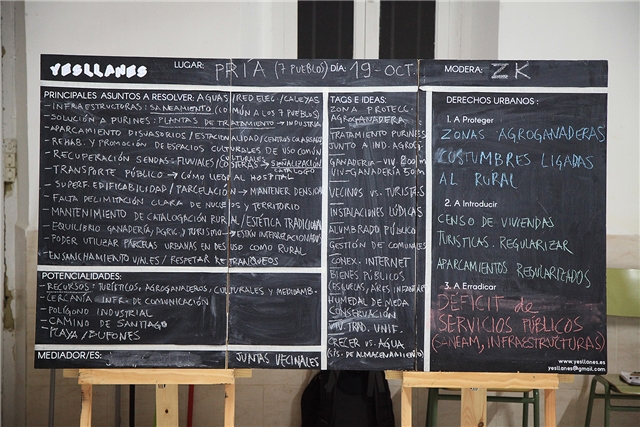 YESLLANES
LUGAR: PRÍA (7 PUEBLOS) DÍA: 19-OCT
MODERA: ZK
PRINCIPALES ASUNTOS A RESOLVER: AGUAS/RED ELEC./CALEYAS
- INFRAESTRUCTURAS: SANEAMIENTO (COMÚN A LOS 7 PUEBLOS)
- SOLUCIÓN A PURINES: PLANTAS DE TRATAMIENTO → INDUSTRIA
- APARCAMIENTO DISUASORIOS/ESTACIONALIDAD/CENTROS
- REHAB. Y PROMOCIÓN DE ESPACIOS CULTURALES DE USO COMÚN
- RECUPERACIÓN SENDAS: FLUVIALES/COSTERAS → SEÑALIZACIÓN
CULTURALES
CATALOGO
- TRANSPORTE PÚBLICO → CÓMO LLEGO AL HOSPITAL
- SUPERF. EDIFICABILIDAD/PARCELACIÓN → MANTENER DENSIDAD
- FALTA DELIMITACIÓN CLARA DE NUCLEOS Y TERRITORIO
- MANTENIMIENTO DE CATALOGACIÓN RURAL/ESTÉTICA TRADICIONAL
- EQUILIBRIO GANADERÍA, AGRIC. Y TURISMO → ESTÁN INTERRELACIONADOS
- PODER UTILIZAR PARCELAS URBANAS EN DESUSO COMO RURAL
- ENSANCHAMIENTO VIALES/RESPETAR RETRANQUEOS
POTENCIALIDADES:
- RECURSOS: TURÍSTICOS, AGROGANADEROS, CULTURALES Y MEDIOAMB.
- CERCANÍA INFR. DE COMUNICACIÓN
- POLÍGONO INDUSTRIAL
- CAMINO DE SANTIAGO
- PLAYA/BUFONES
MEDIADOR/ES:
JUNTAS VECINALES
TAGS E IDEAS:
ZONA PROTECC.
AGROGANADERA
TRATAMIENTO PURINES
JUNTO A IND. AGROG.
GANADERÍA - VIV 200m
VIV = GANADERÍA 50m
VECINOS VS. TURISTAS
INSTALACIONES LÚDICAS
ALUMBRADO PÚBLICO
GESTIÓN DE COMUNALES
CONEX. INTERNET
BIENES PÚBLICOS
(ESCUELAS, AREAS INFANT
HUMEDAL DE MEDA
CONSERVACIÓN
VIV. TRAD. UNIF.
CRECER VS. AGUA
(SIS. DE ALMACENAMIENTO)
DERECHOS URBANOS:
1. A Proteger
ZONAS AGROGANADERAS
COSTUMBRES LIGADAS
AL RURAL
2. A Introducir
CENSO DE VIVIENDAS
TURÍSTICAS. REGULARIZAR
APARCAMIENTOS REGULARIZADOS
3. A Erradicar
DÉFICIT de
SERVICIOS PÚBLICOS
(SANEAM, INFRAESTRUCTURAS)
www.yesllanes.es
yesllanes@gmail.com